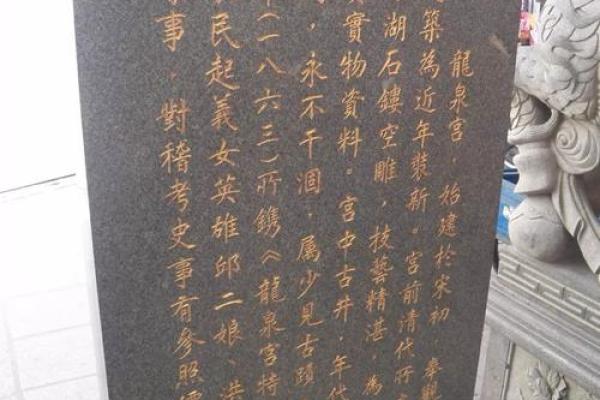 龍泉宮，始建於宋初，奉觀
築為近年裝新。宮前清代所
湖石鏤空雕，技藝精湛，為
實物資料。宮中古井，年代
，永不干涸，属少見古蹟
（一八六三）所鐫《龍泉宮特
民起義女英雄邱二娘、洪
事，對稽考史事有參照